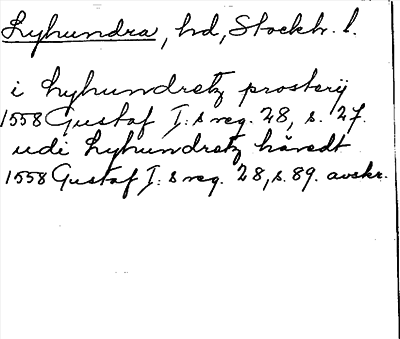 Lyhundra, hd, Stockh. l.
i Lyhundretz prosterij
1558 Gustaf I:s reg. 28, s. 27.
udi Lyhundretz häredt
1558 Gustaf I:s reg. 28, s. 89. avskr.